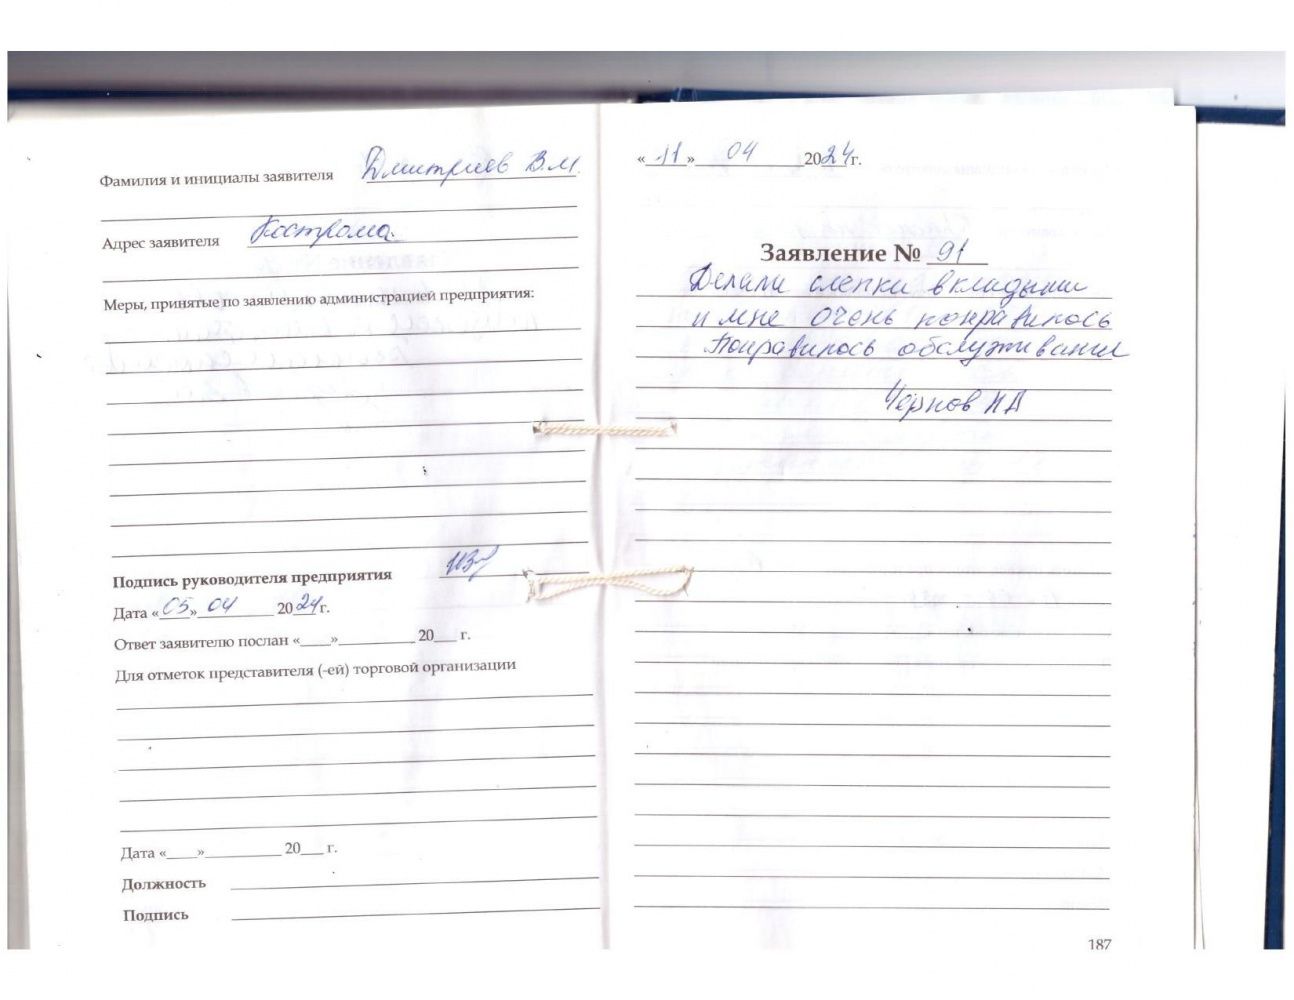 Фамилия и инициалы заявителя Дмитриев В.М.
Адрес заявителя Кострома.
Меры, принятые по заявлению администрацией предприятия:
Подпись руководителя предприятия
Дата «05» 04 2024г.
Ответ заявителю послан «___»__________ 20___ г.
Для отметок представителя (-ей) торговой организации
Дата «____»__________ 20___ г.
Должность
Подпись
«11» 04 2024г.
Заявление № 91
Делали слепки вкладыши
и мне очень понравилось
Понравилось обслуживание
Чернов
187